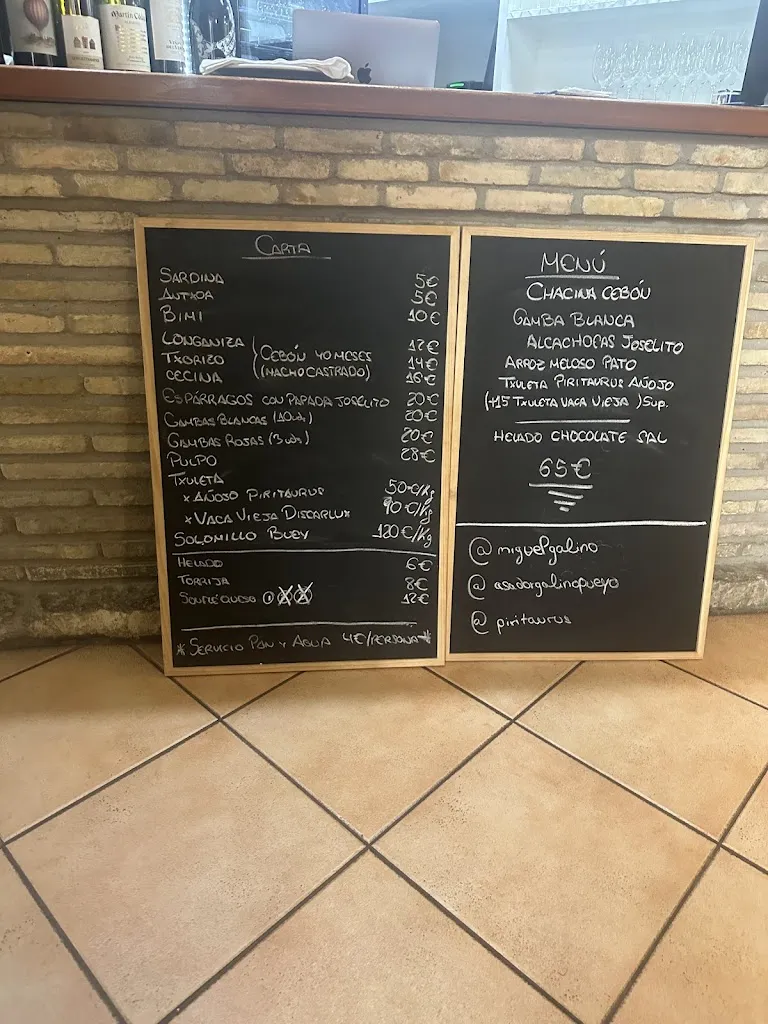 Martín Códax
CARTA
SARDINA 5€
ANTXOA 5€
BIMI 10€
LONGANIZA 12€
TXORIZO 14€
CECINA 16€
(CEBÓN 40 MESES
(MACHO CASTRADO)
ESPÁRRAGOS CON PAPADA JOSELITO 20€
GAMBAS BLANCAS (10 uds) 20€
GAMBAS ROJAS (3 uds) 20€
PULPO 28€
TXULETA
x AÑOJO PIRITAURUS 50€/Kg
x VACA VIEJA DISCARLUX 90€/Kg
SOLOMILLO BUEY 120€/Kg
HELADO 6€
TORRIJA 8€
SOUFLÉ QUESO 12€
* SERVICIO PAN Y AGUA 4€/PERSONA *
MENÚ
CHACINA CEBÓN
GAMBA BLANCA
ALCACHOFAS JOSELITO
ARROZ MELOSO PATO
TXULETA PIRITAURUS AÑOJO
(+15 TXULETA VACA VIEJA) Sup.
HELADO CHOCOLATE SAL
65€
@miguelpgalino
@asadorgalinopueyo
@piritaurus